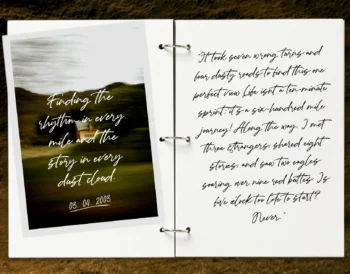 Finding the
rhythm in every
mile and the
story in every
dust cloud.
03. 04. 2003
"It took seven wrong turns and
four dusty roads to find this one
perfect view. Life isn't a ten-minute
sprint; it's a six-hundred mile
journey! Along the way, I met
three strangers, shared eight
stories, and saw two eagles
soaring over nine red buttes. Is
five o'clock too late to start?
Never."